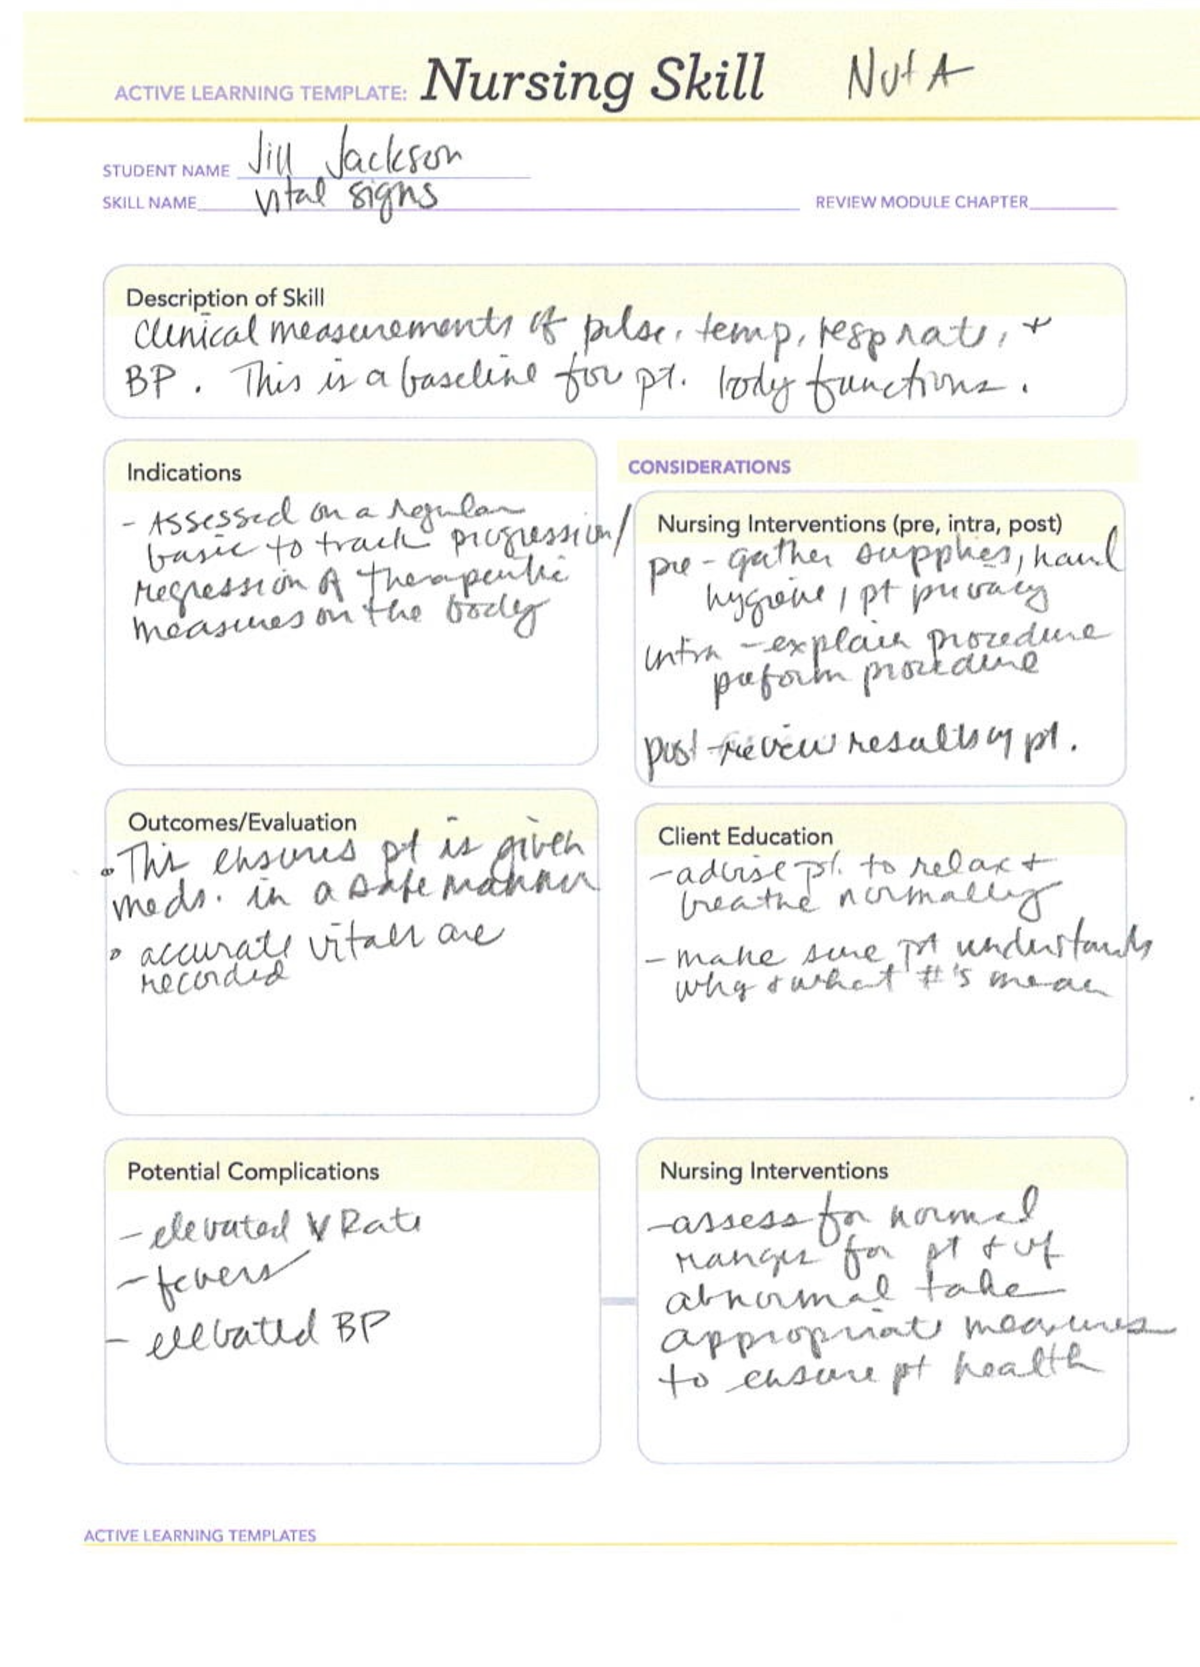 ACTIVE LEARNING TEMPLATE: Nursing Skill Nut A
STUDENT NAME Jill Jackson
SKILL NAME vital signs REVIEW MODULE CHAPTER
Description of Skill
Clinical measurements of pulse, temp, resp rate, +
BP. This is a baseline for pt. body functions.
Indications
- Assessed on a regular
basic to track progression/
regression of therapeutic
measures on the body
CONSIDERATIONS
Nursing Interventions (pre, intra, post)
pre - gather supplies, hand
hygiene, pt privacy
intra - explain procedure
preform procedure
post - review results w/ pt.
Outcomes/Evaluation
• This ensures pt is given
meds. in a safe manner
• accurate vitals are
recorded
Client Education
- advise pt. to relax +
breathe normally
- make sure pt understands
why + what #'s mean
Potential Complications
- elevated Rate
- fevers
- elevated BP
Nursing Interventions
- assess for normal
ranges for pt + if
abnormal take
appropriate measures
to ensure pt health
ACTIVE LEARNING TEMPLATES